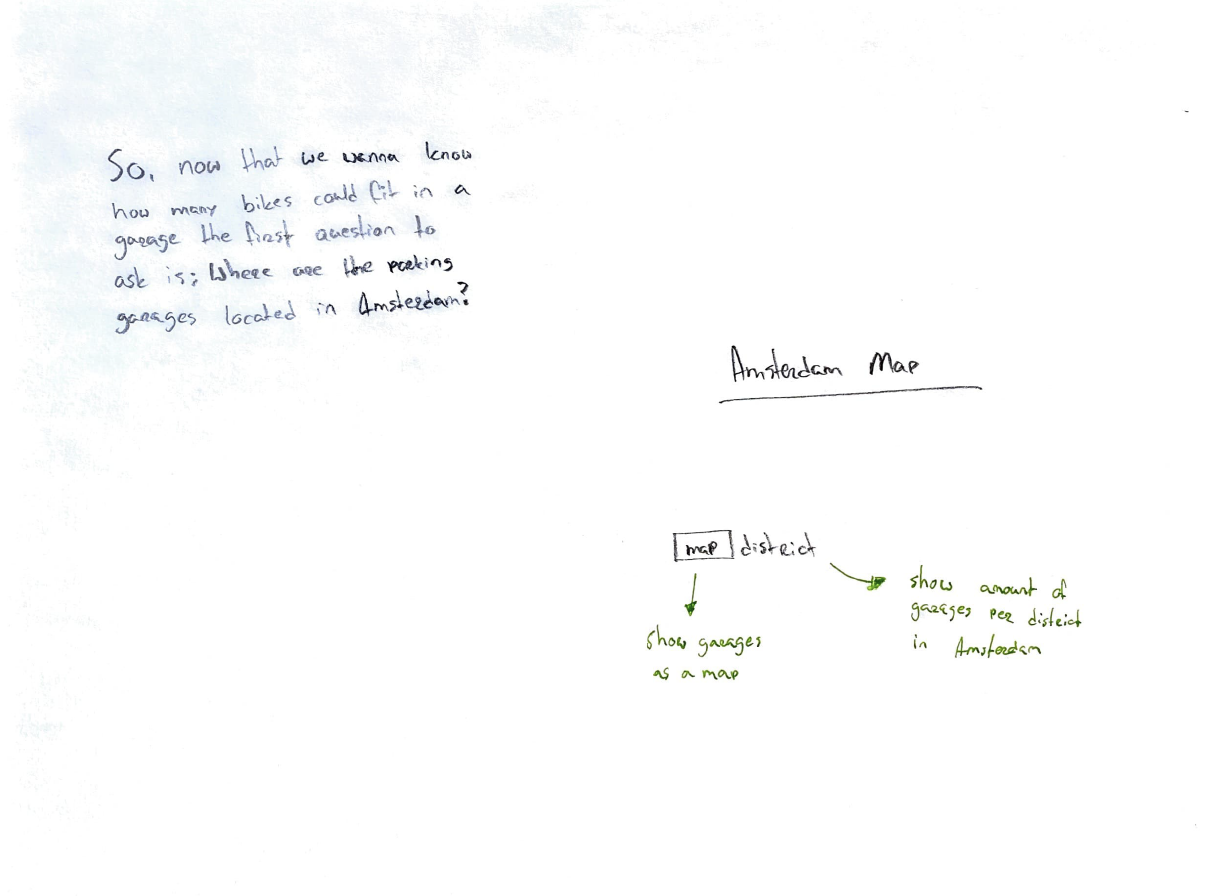 So, now that we wanna know
how many bikes could fit in a
garage the first question to
ask is; Where are the parking
garages located in Amsterdam?
Amsterdam Map
map district
show amount of
garages per district
in Amsterdam
show garages
as a map